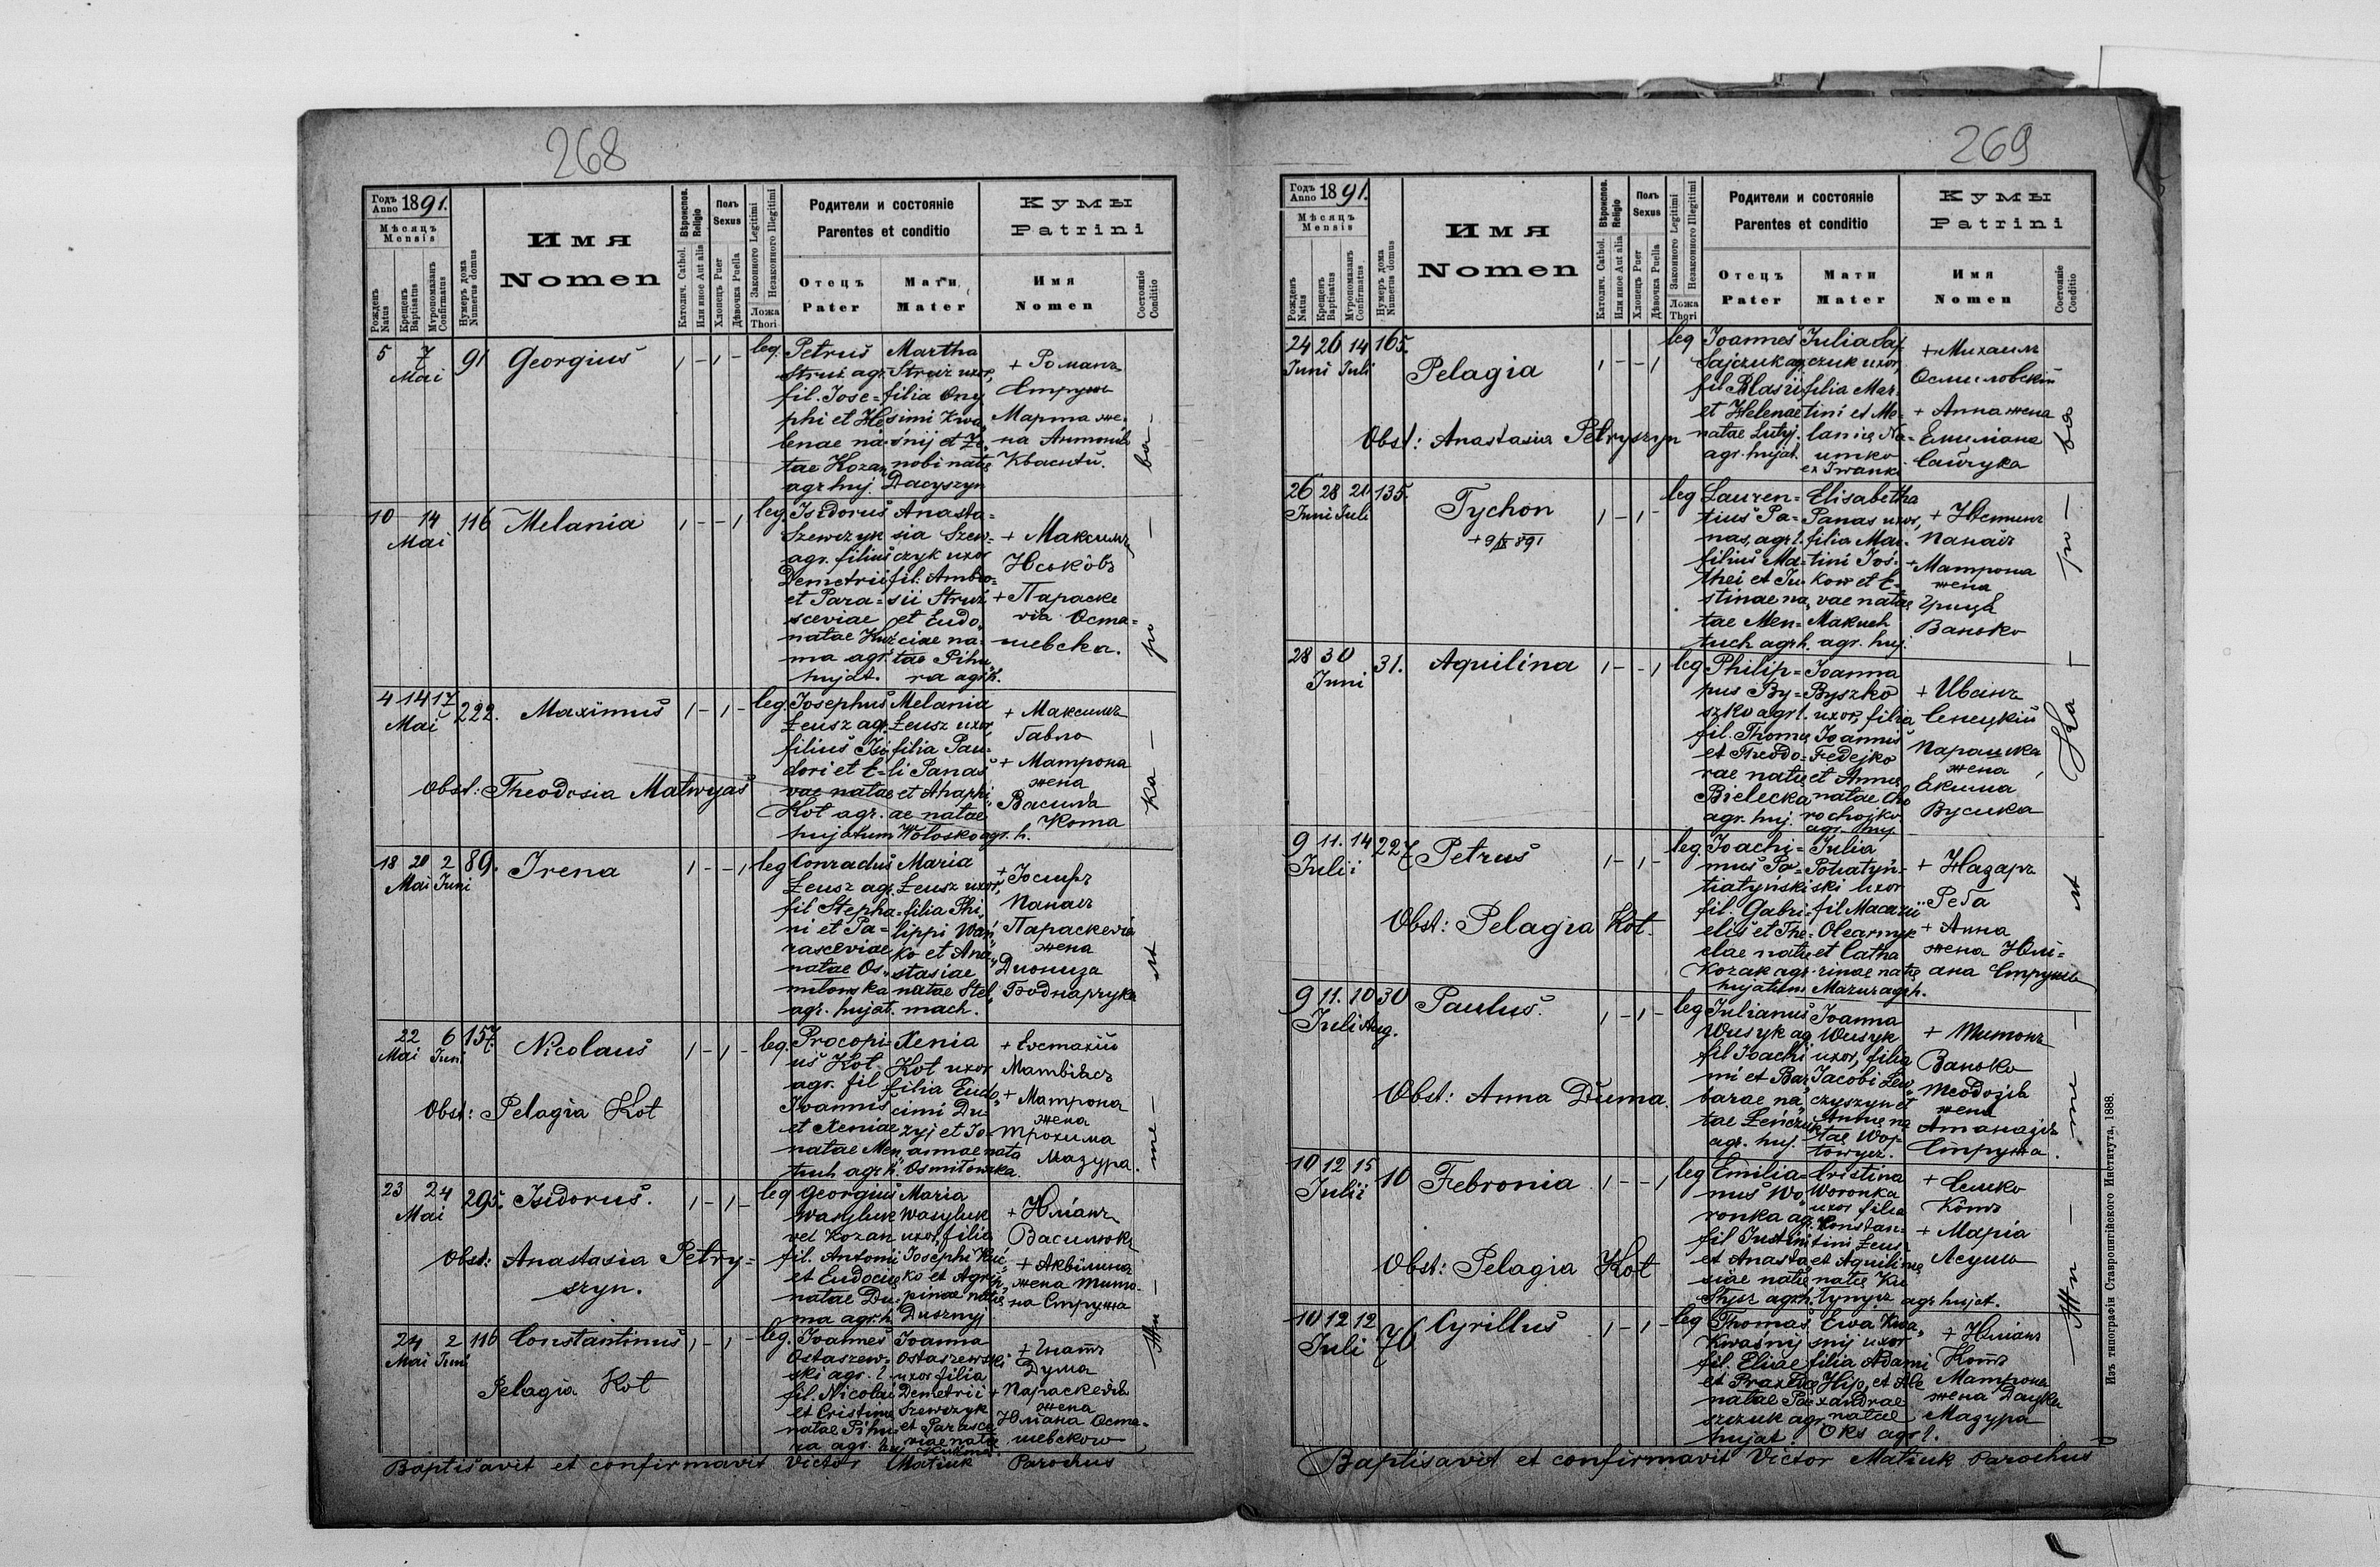 268
Годъ Anno 1891.
Мѣсяцъ
Mensis
Рожденъ Natus
Крещенъ Baptisatus
Мѵропомазанъ Confirmatus
Нумеръ дома Numerus domus
Имя
Nomen
Вѣроиспов. Religio
Католич. Cathol.
Или иное Aut alia
Полъ
Sexus
Хлопецъ Puer
Дѣвочка Puella
Законного Legitimi
Незаконного Illegitimi
Ложа
Thori
Родители и состояніе
Parentes et conditio
Отецъ
Pater
Мати
Mater
Кумы
Patrini
Имя
Nomen
Состояніе
Conditio
5 7 Mai 91 Georgius 1 - 1 - leg.
Petrus
Struż agr.
fil. Jose=
phi et He
lenae na=
tae Kozan
agr huj.
Martha
Struż uxor,
filia Ony
simi Kwa
śnij et Ze
nobi natę
Dacyszyn
+ Романъ
Стружъ
Марта же
на Антонія
Квасній.
10 14 Mai 116 Melania 1 - - 1 leg.
Isidorus
Szewczyk
agr. filius
Demetrii
et Para=
sceviae
natae Kuź
ma agr.
hujat.
Anasta=
sia Szew=
czyk uxor
fil: Ambro=
sii Struż
et Eudo
ciae na=
tae Pihu
ra agr h.
+ Максимъ
Юськôвъ
+ Параске
вія Оста=
шевска.
4 14 17 Mai 222. Maximus 1 - 1 - leg.
Josephus
Łeusz agr.
filius Isi
dori et E=
vae natae
Kot agr.
hujatum
Melania
Łeusz uxor
filia Pau=
li Panas
et Ahaphi
ae natae
Wołosko agr. h.
+ Максимъ
Гавло
+ Матрона
жена
Василя
Кота
Obst: Theodosia Matwyas
18 20 Mai 2 Juni 89. Irena 1 - - 1 leg
Conradus
Łeusz agr.
fil Stepha=
ni et Pa=
rasceviae
natae Os=
miłowska
agr. hujat.
Maria
Łeusz uxor,
filia Phi
lippi Wań
ko et Ana
stasiae
natae Stel
mach.
+ Іосифъ
Панасъ
Параскевія
жена
Диониза
Боднарчука
22 Mai 6 Juni 157. Nicolaus 1 - 1 - leg.
Procopi=
us Kot
agr. fil
Joannis
et Xeniae
natae Men
tuch agr h.
Xenia
Kot uxor
filia Eudo
cimi Du=
zyj et Jo=
annae nata
Osmiłowska.
+ Евстахій
Матвіясъ
+ Матрона
жена
Трохима
Мазура.
Obst: Pelagia Kot
23 24 Mai 295. Isidorus. 1 - 1 - leg
Georgius
Wasyluk
vel Kozan
fil. Antonii
et Eudocię
natae Du=
ma agr. h
Maria
Wasyluk
uxor, filia
Josephi Kuć
ko et Agrip
pinae natę
Duznyj
+ Юліанъ
Василюкъ
+ Акви́лина
жена Тимо=
на Стружа
Obst: Anastasia Petry=
szyn.
24 Mai 2 Juni 116 Constantinus 1 - 1 - leg.
Joannes
Ostaszew=
ski agr. l.
fil. Nicolai
et Cristinę
natae Pihu=
ra agr. huj
Joanna
Ostaszewski
uxor filia
Demetrii
Szewczyk
et Parasce
viae natae
Kuźma
+ Игнатъ
Дума
+ Параскевія
жена
Юліана Оста=
шевского
Pelagia Kot
Жи — те — ль — ка — ро — ва —
Baptisavit et confirmavit Victor Matiuk Parochus
269
Годъ Anno 1891.
Мѣсяцъ
Mensis
Рожденъ Natus
Крещенъ Baptisatus
Мѵропомазанъ Confirmatus
Нумеръ дома Numerus domus
Имя
Nomen
Вѣроиспов. Religio
Католич. Cathol.
Или иное Aut alia
Полъ
Sexus
Хлопецъ Puer
Дѣвочка Puella
Законного Legitimi
Незаконного Illegitimi
Ложа
Thori
Родители и состояніе
Parentes et conditio
Отецъ
Pater
Мати
Mater
Кумы
Patrini
Имя
Nomen
Состояніе
Conditio
24 26 Juni 14 Juli 165. Pelagia 1 - - 1 leg
Joannes
Sajczuk agr
fil Blasii
et Helenae
natae Lutyj.
agr. hujat.
Julia Saj
czuk uxor,
filia Mar=
tini et Me=
lanię Na=
umko
ex Iwanki
+ Михаилъ
Осмиловскій
+ Анна жена
Емиліана
Сайчука
Obst: Anastasia Petryszyn
26 28 Juni 21 Juli 135. Tychon 1 - 1 - leg
+ 9/IX 891
Lauren=
tius Pa=
nas, agr l.
filius Ma=
thei et Iu=
stinae na
tae Men=
tuch agr h.
Elisabetha
Panas uxor,
filia Mar
tini Jos=
kow et E=
vae natae
Makuch
agr. huj.
+ Юстинъ
Панасъ
+ Матрона
жена
Грицâ
Ванько
28 30 Juni 31. Aquilina 1 - - 1 leg
Philip=
pus By=
szko agr l.
fil. Thomę
et Theodo=
rae natę
Bielecka
agr. huj.
Joanna
Byszko
uxor, filia
Joannis
Fedejko
et Annę
natae Cho
rochojko
agr. huj
+ Иванъ
Сенецкій
Парашка
жена
Екима
Вусика
9 11. 14 Julii 227 Petrus 1 - 1 - leg.
Joachi=
mus Po=
tiatyński
fil. Gabri=
elis et The=
clae natę
Kozak agr.
hujatum
Julia
Potiatyń=
ski uxor
fil Macarii
Olearnyk
et Catha
rinae natę
Mazur agr h.
+ Назаръ
Реба
+ Анна
жена Юлі=
ана Стружа
Obst: Pelagia Kot.
9 11. Juli 10 Aug. 30 Paulus. 1 - 1 - leg
Julianus
Wusyk ag.
fil Joachi
mi et Bar
barae na
tae Leńczuk
agr. huj.
Joanna
Wusyk
uxor, filia
Jacobi Lew
czyszyn et
Annę na
tae Woj=
towycz.
+ Тимонъ
Ванько
Теодозія
жена
Атаназія
Стружа.
Obst: Anna Duma.
10 12 15 Julii 10 Febronia 1 - - 1 leg
Emilia=
nus Wo=
ronka ag.
fil Justini
et Anasta
siae natę
Stysz agr h.
Cristina
Woronka
uxor filia
Constan=
tini Łeus
et Aquilinę
natę Ku
tynycz agr hujat.
+ Семко
Котъ
+ Марія
Леушъ
Obst: Pelagia Kot
10 12 12 Juli 76 Cyrillus 1 - 1 - leg
Thomas
Kwaśnij
fil. Eliae
et Praxedę
natae Pa=
szczuk agr.
hujat.
Ewa Kwa
śnij uxor
filia Adami
Hijo, et Ale
xandrae
natae
Oks agr l.
+ Юліанъ
Котъ
Матрона
жена Дацька
Мазура
Жи — те — ль — ка — ро — ва
Baptisavit et confirmavit Victor Matiuk Parochus
Изъ типографіи Ставропигійского Института, 1888.